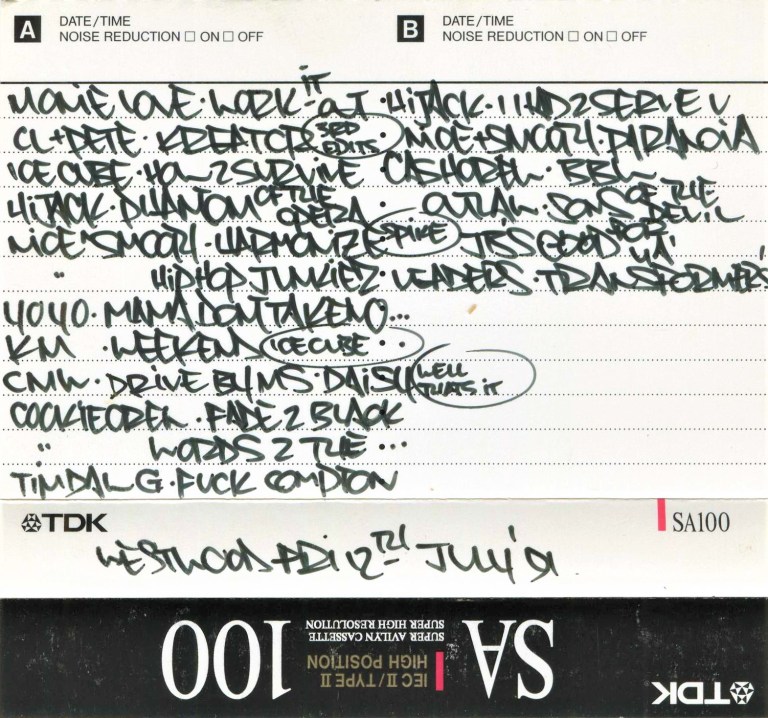 A DATE/TIME B DATE/TIME
NOISE REDUCTION ☐ ON ☐ OFF NOISE REDUCTION ☐ ON ☐ OFF
MONIE LOVE · WORK-IT OUT · HIJACK · I HAD 2 SERVE U
CL + PETE · KREATORS 3RD EDITS · NICE + SMOOTH · PARANOIA
ICE CUBE · HOW 2 SURVIVE CASH CREW ·
HIJACK · PHANTOM OF THE OPERA · OUTLAW · SONS OF THE DEVIL
NICE SMOOTH · HARMONIZE · SPIKE JBS GOOD FOR YA'
" HIPHOP JUNKIEZ · LEADERS · TRANSFORMERS
YOYO · MAMA DONT TAKE NO...
KM · WEEKEND ICE CUBE · ·
CMW · DRIVE BY MS · DAISY WELL THATS IT
COOKIE CREW · FADE 2 BLACK
" WORDS 2 THE ...
TIM DAL G · FUCK COMPTON
TDK SA100
WESTWOOD FRI 12TH JULY '91
SA 100
SUPER AVILYN CASSETTE
SUPER HIGH RESOLUTION
IEC II / TYPE II
HIGH POSITION
TDK